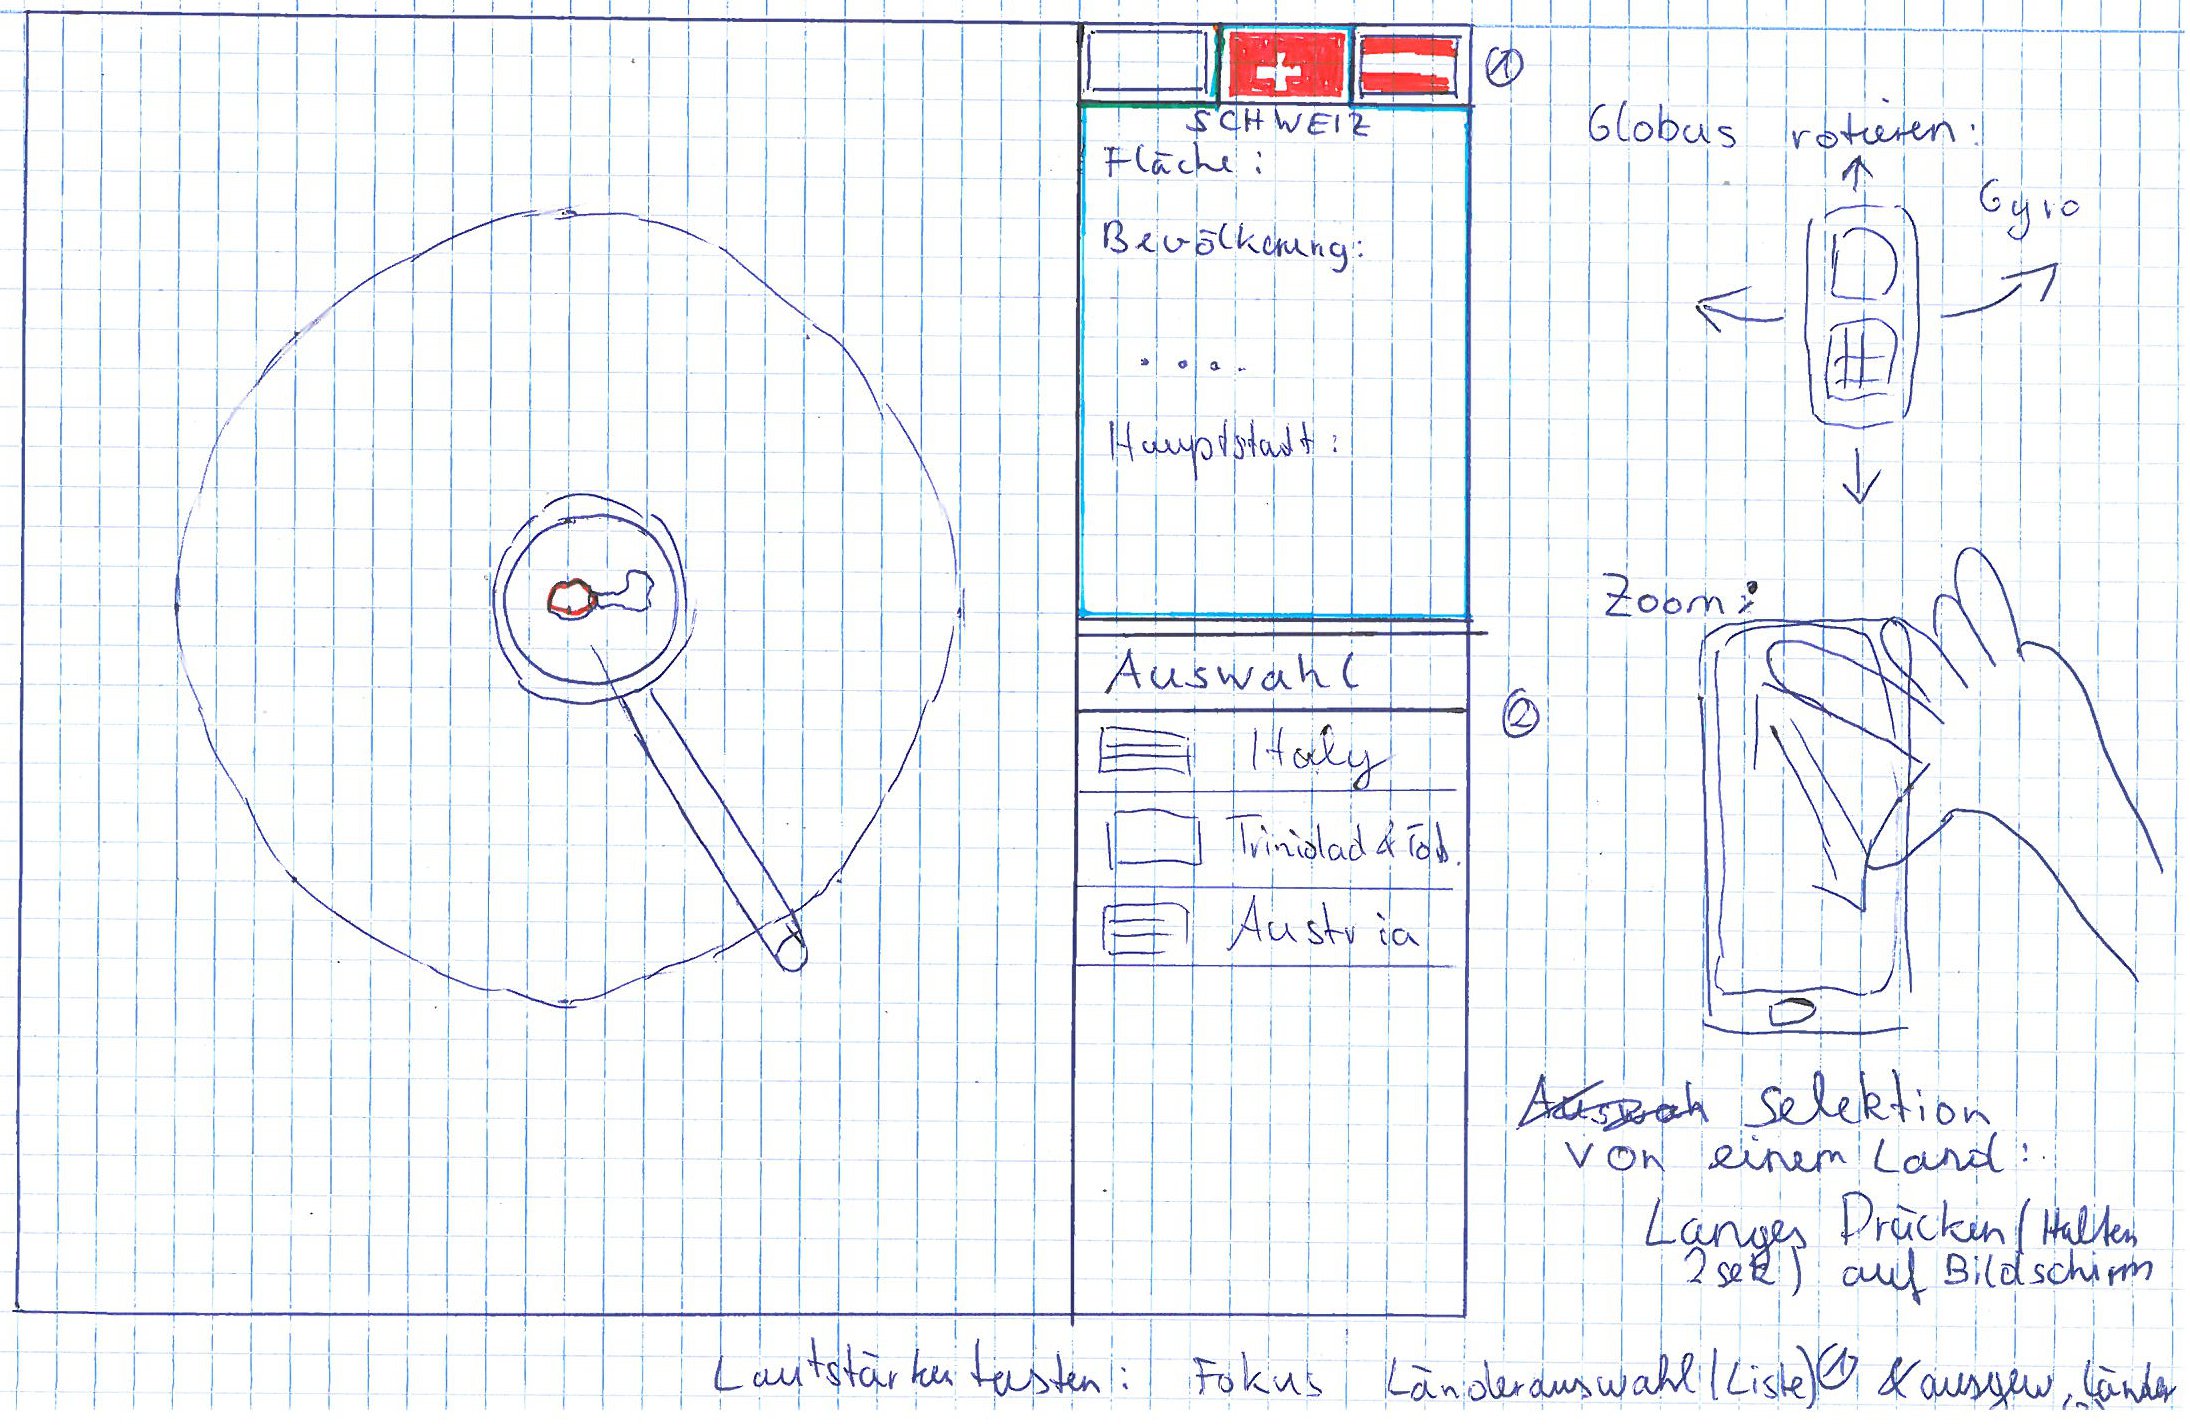 ①
SCHWEIZ
Fläche:
Bevölkerung:
....
Hauptstadt:
Auswahl
②
Italy
Trinidad & Tob.
Austria
Globus rotieren:
Gyro
Zoom:
Selektion
von einem Land:
Langes Drücken (Halten
2sek) auf Bildschirm
Lautstärketasten: Fokus Länderauswahl (Liste) ① & ausgew. Länder